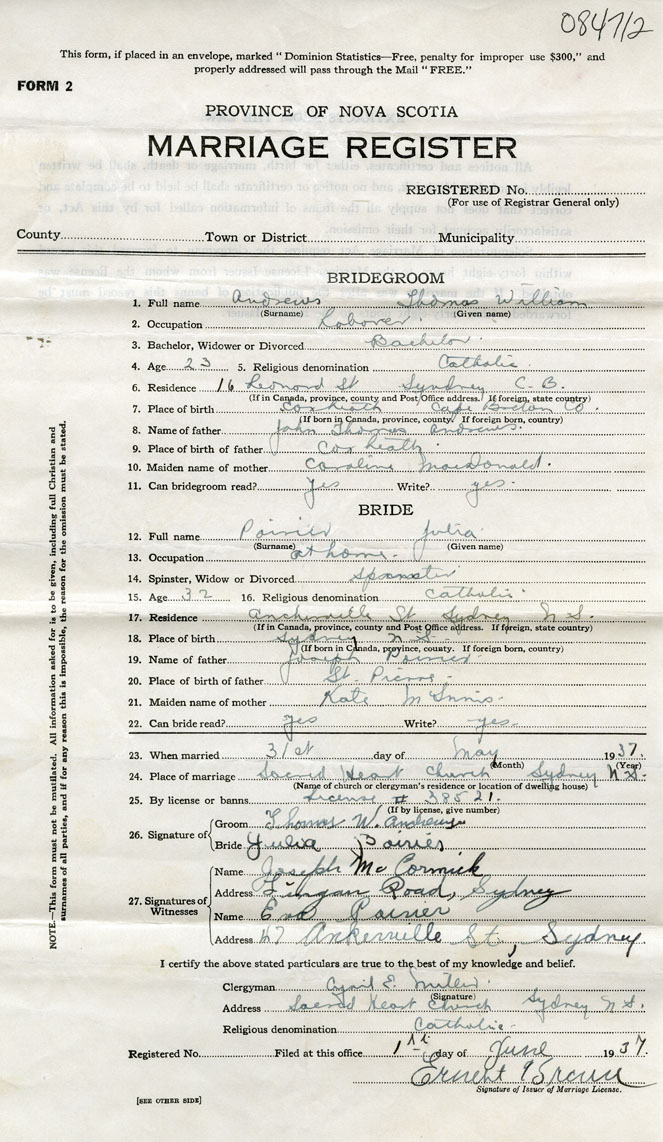 084712
This form, if placed in an envelope, marked "Dominion Statistics—Free, penalty for improper use $300," and
properly addressed will pass through the Mail "FREE."
FORM 2
PROVINCE OF NOVA SCOTIA
MARRIAGE REGISTER
REGISTERED No.
(For use of Registrar General only)
County Town or District Municipality
BRIDEGROOM
1. Full name Andrews Thomas William
(Surname) (Given name)
2. Occupation Laborer
3. Bachelor, Widower or Divorced Bachelor
4. Age 23 5. Religious denomination Catholic
6. Residence 16 Leonard St Syndney C.B.
(If in Canada, province, county and Post Office address. If foreign, state country)
7. Place of birth Coxheath Cape Breton Co.
(If born in Canada, province, county. If foreign born, country)
8. Name of father John Thomas Andrews.
9. Place of birth of father Coxheath
10. Maiden name of mother Caroline MacDonald.
11. Can bridegroom read? Yes Write? yes.
BRIDE
12. Full name Poirier Julia
(Surname) (Given name)
13. Occupation at home.
14. Spinster, Widow or Divorced Spinster
15. Age 32 16. Religious denomination Catholic
17. Residence Ankerville St Sydney N.S.
(If in Canada, province, county and Post Office address. If foreign, state country)
18. Place of birth Sydney N.S.
(If born in Canada, province, county. If foreign born, country)
19. Name of father Joseph Poirier
20. Place of birth of father St. Pierre
21. Maiden name of mother Kate McInnis.
22. Can bride read? yes Write? yes.
23. When married 31st day of May 1937.
(Month) (Year)
24. Place of marriage Sacred Heart Church Sydney N.S.
(Name of church or clergyman's residence or location of dwelling house)
25. By license or banns License # 38521.
(If by license, give number)
26. Signature of Groom Thomas W. Andrews
Bride Julia Poirier
27. Signatures of Witnesses
Name Joseph McCormick
Address Road, Sydney
Name Eva Poirier
Address 47 Ankerville St, Sydney
I certify the above stated particulars are true to the best of my knowledge and belief.
Clergyman Cyril E.
(Signature)
Address Sacred Heart Church Sydney N.S.
Religious denomination Catholic.
Registered No. Filed at this office 1st day of June 1937
Ernest
Signature of Issuer of Marriage License.
[SEE OTHER SIDE]
NOTE.—This form must not be mutilated. All information asked for is to be given, including full Christian and
surnames of all parties, and if for any reason this is impossible, the reason for the omission must be stated.